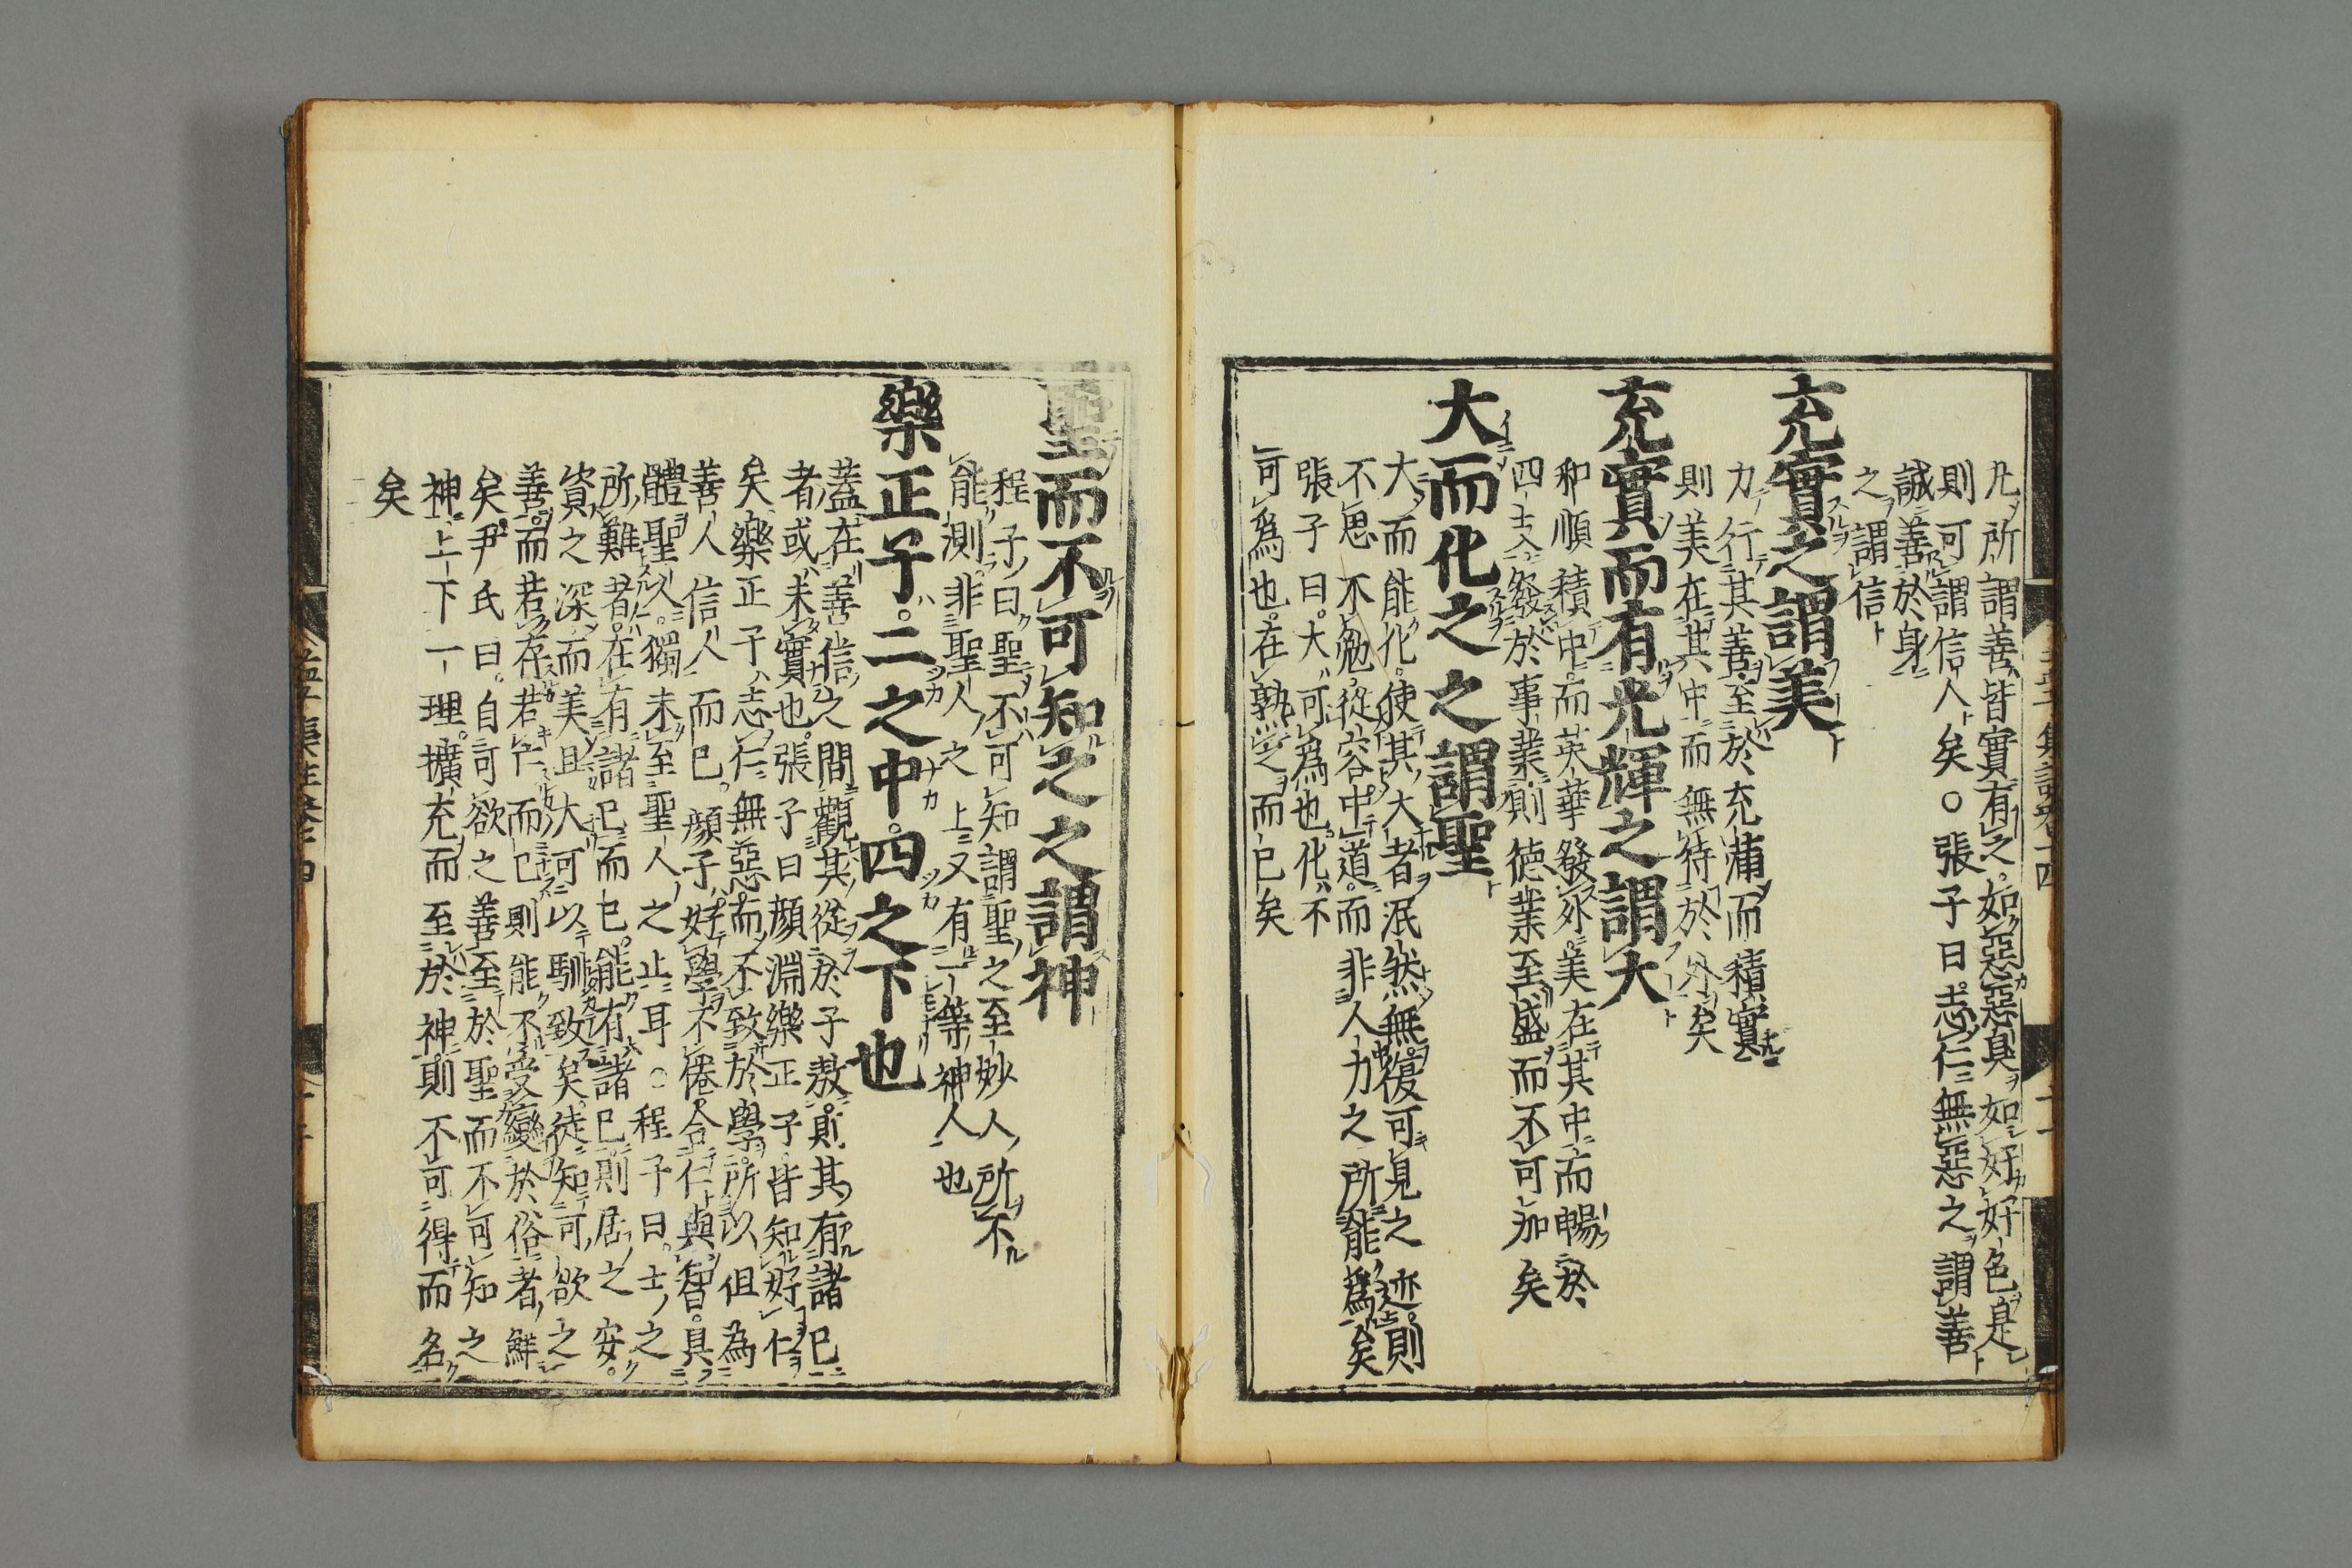 凡所謂善皆實有之如惡惡臭如好好色是
則可謂信人矣○張子曰志仁無惡之謂善
誠善於身
之謂信
充實之謂美
力行其善至於充滿而積實
則美在其中而無待於外矣
充實而有光輝之謂大
和順積中而英華發外美在其中而暢於
四支發於事業則德業至盛而不可加矣
大而化之之謂聖
大而能化使其大者泯然無復可見之迹則
不思不勉從容中道而非人力之所能爲矣
張子曰大可爲也化不
可爲也在熟之而已矣
聖而不可知之之謂神
程子曰聖不可知謂聖之至妙人所不
能測非聖人之上又有一等神人也
樂正子二之中四之下也
蓋在善信之間觀其從於子敖則其有諸己
者或未實也張子曰顏淵樂正子皆知好仁
矣樂正子志仁無惡而不致於學所以但為
善人信人而已顏子好學不倦合仁與智具
體聖人獨未至聖人之止耳○程子曰士之
所難者在有諸己而已能有諸己則居之安
資之深而美且大可以馴致矣徒知可欲之
善而若存若亡而已則能不受變於俗者鮮
矣尹氏曰自可欲之善至於聖而不可知之
神上下一理擴充而至於神則不可得而名
矣